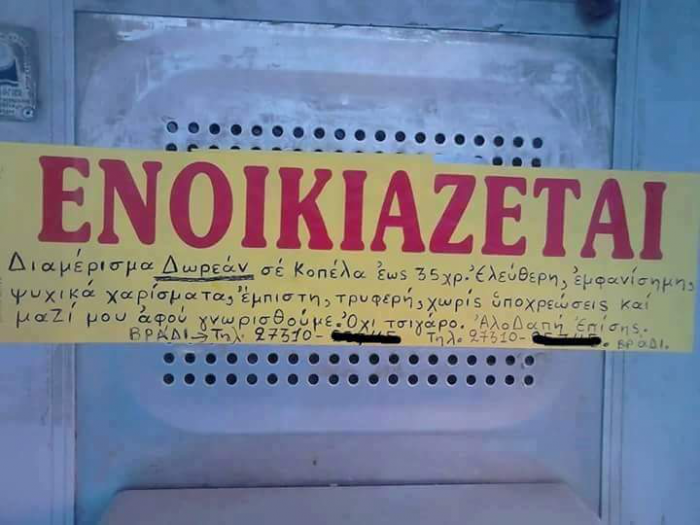 ΕΝΟΙΚΙΑΖΕΤΑΙ
Διαμέρισμα Δωρεάν σέ Κοπέλα έως 35χρ. Ελεύθερη, έμφανίσημη,
ψυχικά χαρίσματα, έμπιστη, τρυφερή, χωρίς ύποχρεώσεις καί
μαζί μου άφού γνωρισθούμε. Όχι τσιγάρο. Άλοδαπή Έπίσης.
ΒΡΑΔΙ → Τηλ. 27310- Τηλ. 27310- . ΒΡΑΔΙ.